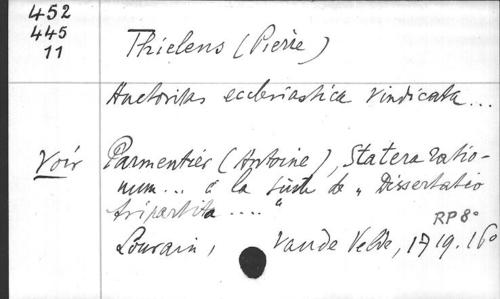 452
445
11
Thielens (Pierre)
Auctoritas ecclesiastica vindicata...
Voir Parmentier (Antoine), Statera ratio-
num... à la suite de „ Dissertatio
tripartita .... "
RP 8°
Louvain, Vande Velde, 1719. 16°